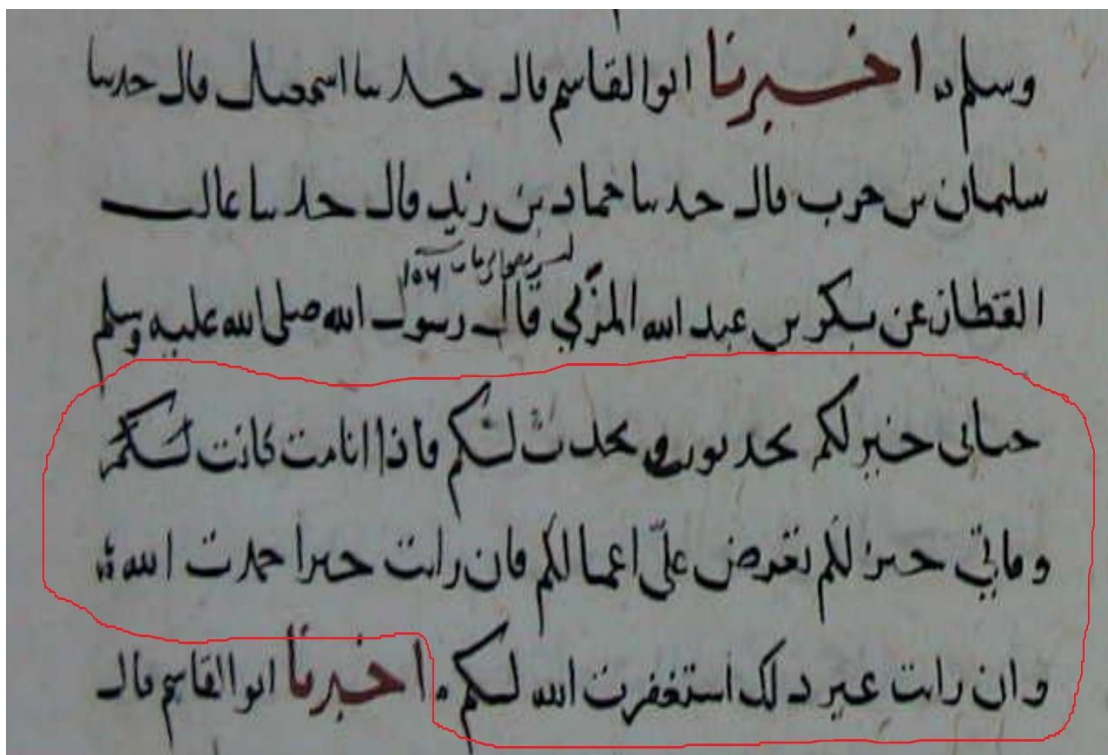 وسلم ه اخبرنا ابو القاسم قال حدثنا اسمعيل قال حدثنا
سليمان بن حرب قال حدثنا حماد بن زيد قال حدثنا غالب
القطان عن بكر بن عبد الله المزني قال رسول الله صلى الله عليه وسلم
حياتي خير لكم تحدثون ويحدث لكم فاذا انا مت كانت
وفاتي خير لكم تعرض علي اعمالكم فان رايت خيرا حمدت الله
وان رايت غير ذلك استغفرت الله لكم ه اخبرنا ابو القاسم قال